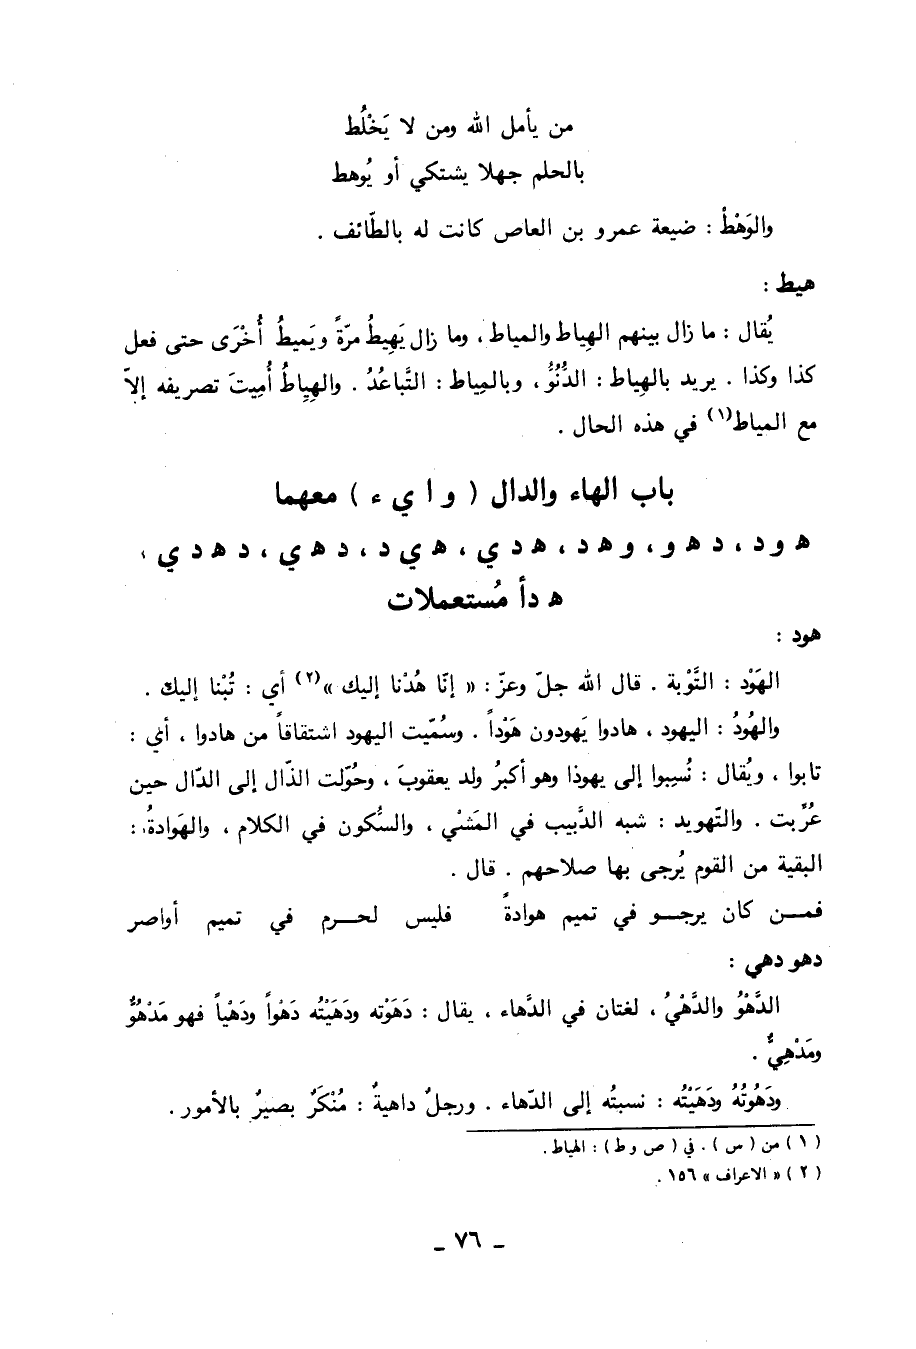 من يأمل الله ومن لا يَخْلُط
بالحلم جهلا يشتكي أو يُوهط
والوَهْطُ : ضيعة عمرو بن العاص كانت له بالطّائف .
هيط :
يُقال : ما زال بينهم الهِياط والمياط ، وما زال يَهِيطُ مرّةً ويَميطُ أُخْرَى حتى فعل
كذا وكذا . يريد بالهِياط : الدُّنُوُّ ، وبالمِياط : التَّباعُدُ . والهِياطُ أُمِيتَ تصريفه إلاّ
مع المياط(١) في هذه الحال .
باب الهاء والدال ( و ا ي ء ) معهما
ه و د ، د ه و ، و ه د ، ه د ي ، ه ي د ، د ه ي ، د ه د ي ،
ه د أ مُستعملات
هود :
الهَوْد : التَّوْبة . قال الله جلّ وعزّ : « إنّا هُدْنا إليك »(٢) أي : تُبْنا إليك .
والهُودُ : اليهود ، هادوا يَهودون هَوْداً . وسُمّيت اليهود اشتقاقاً من هادوا ، أي :
تابوا ، ويُقال : نُسِبوا إلى يهوذا وهو أكبرُ ولد يعقوبَ ، وحُوّلت الذّال إلى الدّال حين
عُرِّبت . والتّهويد : شبه الدَّبيب في المَشْي ، والسُّكون في الكلام ، والهَوادةُ :
البقية من القوم يُرجى بها صلاحهم . قال .
فمــن كان يرجــو في تميم هوادةً فليس لحــرم في تميم أواصر
دهو دهي :
الدَّهْوُ والدَّهْيُ ، لغتان في الدَّهاء ، يقال : دَهَوْته ودَهَيْتُه دَهْواً ودَهْياً فهو مَدْهُوٌّ
ومَدْهِيٌّ .
ودَهُوتُهُ ودَهَيْتُه : نسبتُه إلى الدّهاء . ورجلٌ داهيةٌ : مُنْكَرٌ بصيرٌ بالأمور .
( ١ ) من ( س ) . في ( ص و ط ) : الهياط .
( ٢ ) « الاعراف » ١٥٦ .
ـ ٧٦ ـ